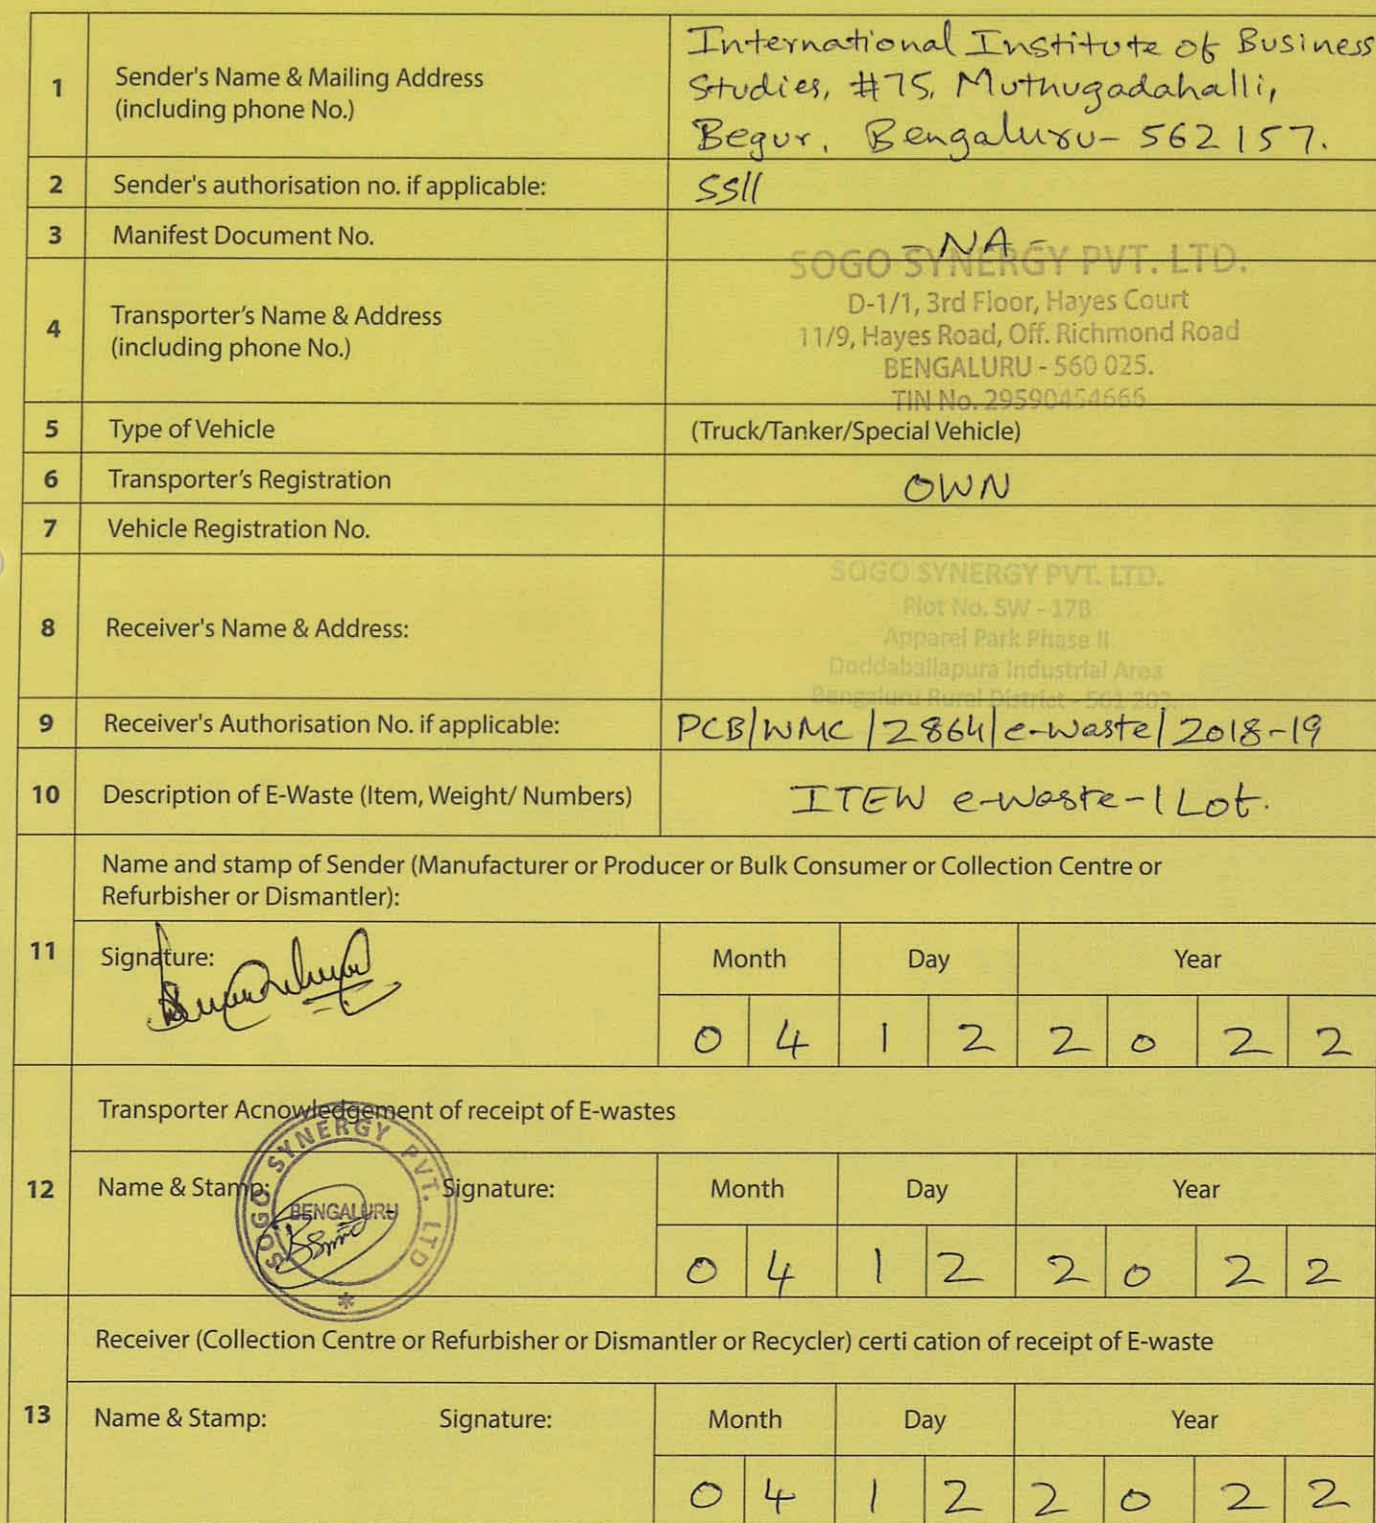 1 Sender's Name & Mailing Address
(including phone No.)
International Institute of Business
Studies, #75, Muthugadahalli,
Begur, Bengaluru- 562 157.
2 Sender's authorisation no. if applicable:
3 Manifest Document No. -NA-
4 Transporter's Name & Address
(including phone No.)
SOGO SYNERGY PVT. LTD.
D-1/1, 3rd Floor, Hayes Court
11/9, Hayes Road, Off. Richmond Road
BENGALURU - 560 025.
TIN No. 29590454666
5 Type of Vehicle (Truck/Tanker/Special Vehicle)
6 Transporter's Registration OWN
7 Vehicle Registration No.
8 Receiver's Name & Address:
SOGO SYNERGY PVT. LTD.
Plot No. SW - 17B
Apparel Park Phase II
Doddaballapura Industrial Area
Bengaluru Rural District - 561 203
9 Receiver's Authorisation No. if applicable: PCB/WMC/2864/e-waste/2018-19
10 Description of E-Waste (Item, Weight/ Numbers) ITEW e-waste-1 Lot.
11 Name and stamp of Sender (Manufacturer or Producer or Bulk Consumer or Collection Centre or
Refurbisher or Dismantler):
Signature: Month Day Year
0 4 1 2 2 0 2 2
12 Transporter Acnowledgement of receipt of E-wastes
Name & Stamp: Signature: Month Day Year
SOGO SYNERGY PVT. LTD
BENGALURU
0 4 1 2 2 0 2 2
13 Receiver (Collection Centre or Refurbisher or Dismantler or Recycler) certi cation of receipt of E-waste
Name & Stamp: Signature: Month Day Year
0 4 1 2 2 0 2 2